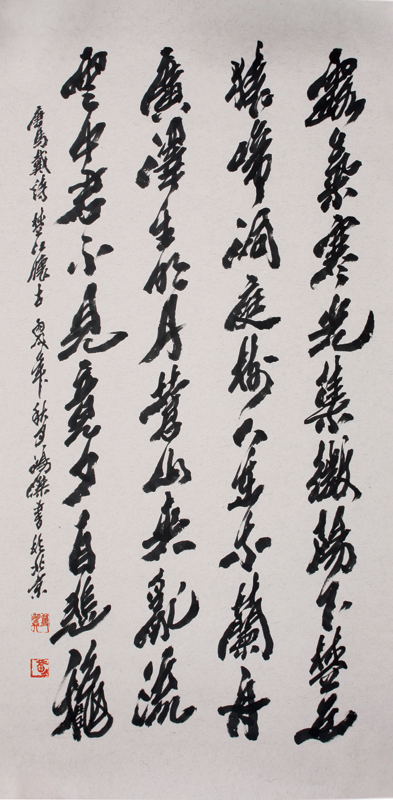 露氣寒光集微陽下楚丘
猿啼洞庭樹人在木蘭舟
廣澤生明月蒼山夾亂流
雲中君不見竟夕自悲龝
唐馬戴詩楚江懷古 年秋月鴻傑書於北京